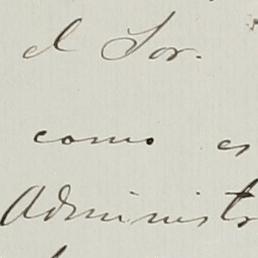 el Sor.
como es
Administr